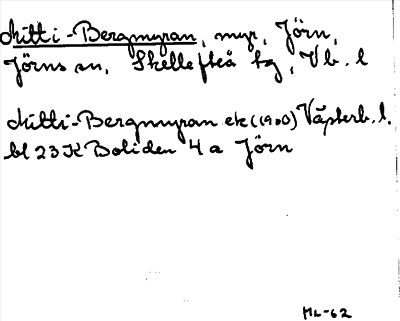 Mitti-Bergmyran, myr, Jörn,
Jörns sn, Skellefteå tg, Vb. l
Mitti-Bergmyran ek (1900) Västerb. l.
bl 23 K Boliden 4 a Jörn
ML-62